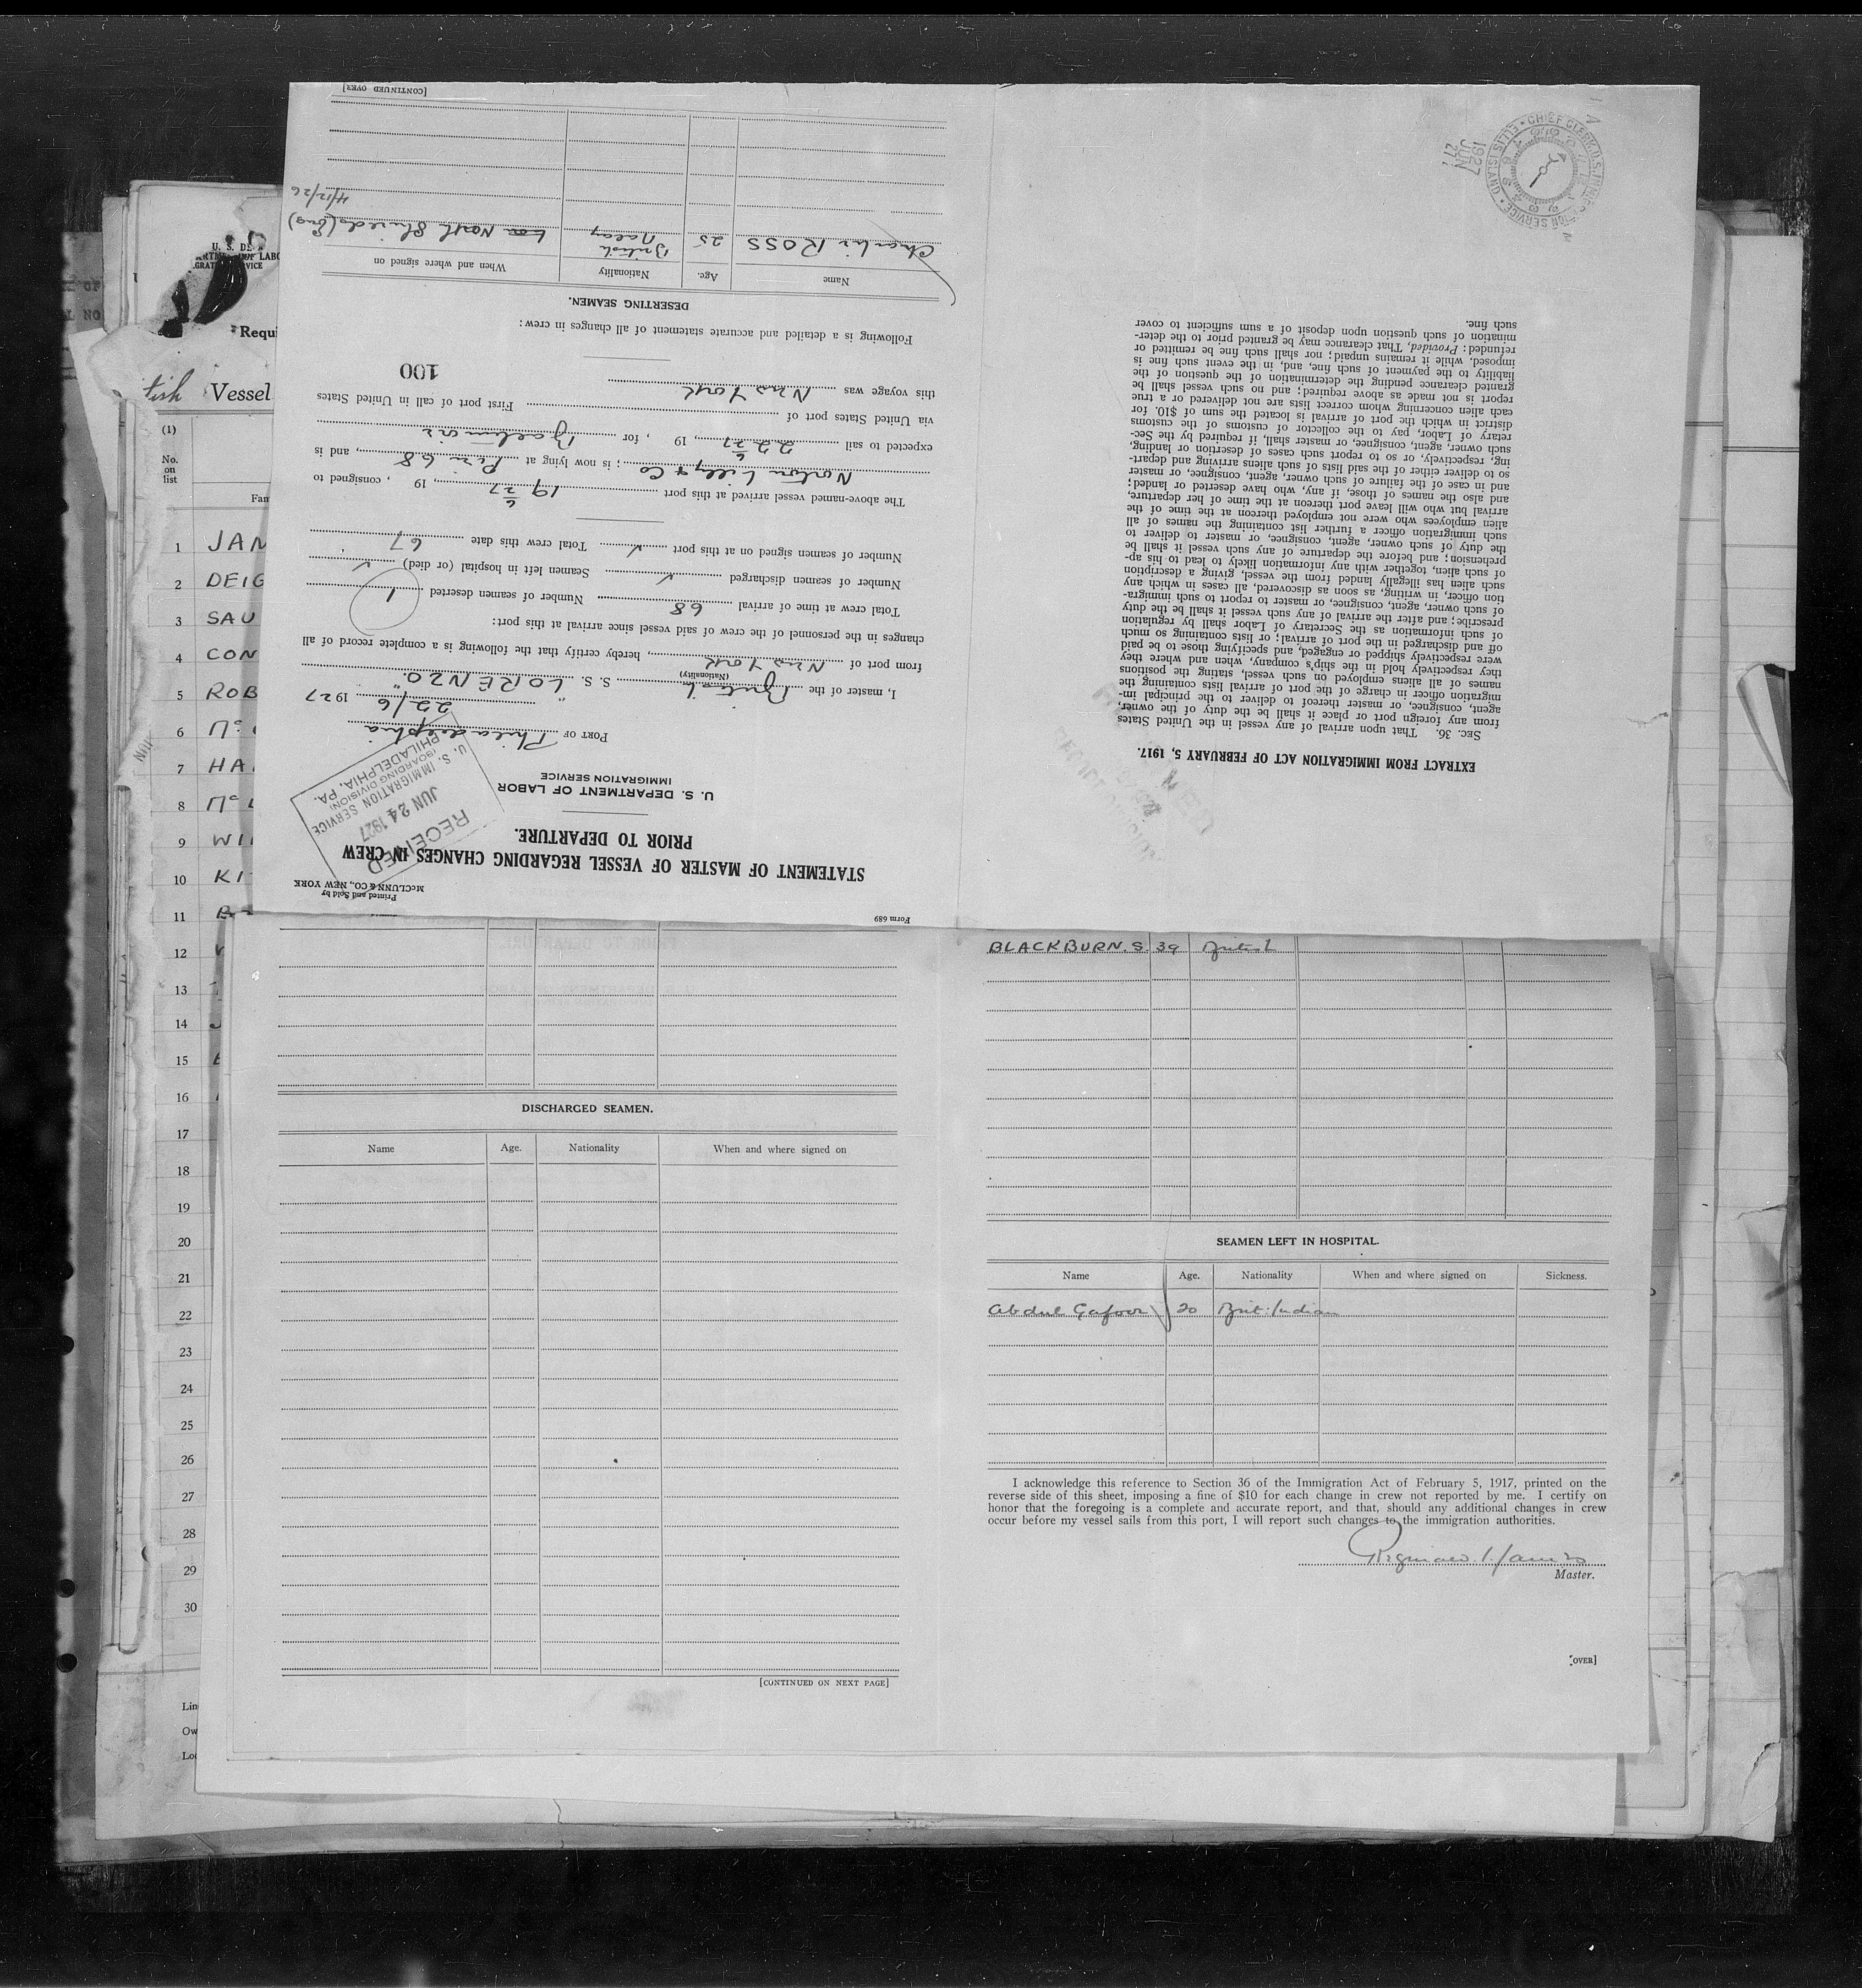 Form 689
Printed and Sold by
McCLUNN & CO., NEW YORK
STATEMENT OF MASTER OF VESSEL REGARDING CHANGES IN CREW
PRIOR TO DEPARTURE.
U. S. DEPARTMENT OF LABOR
IMMIGRATION SERVICE
RECEIVED
JUN 24 1927
U. S. IMMIGRATION SERVICE
(BOARDING DIVISION)
PHILADELPHIA, PA.
PORT OF Philadelphia
22/6 1927
I, master of the British S. S. "LORENZO."
(Nationality)
from port of New York, hereby certify that the following is a complete record of all
changes in the personnel of the crew of said vessel since arrival at this port:
Total crew at time of arrival 68 Number of seamen deserted 1
Number of seamen discharged ✓ Seamen left in hospital (or died) ✓
Number of seamen signed on at this port ✓ Total crew this date 67
The above-named vessel arrived at this port 19/6/27, 19 , consigned to
Norton Lilly & Co ; is now lying at Pier 68, and is
expected to sail 22/6/27, 19 , for
via United States port of First port of call in United States
this voyage was New York
100
Following is a detailed and accurate statement of all changes in crew:
DESERTING SEAMEN.
Name Age. Nationality When and where signed on
Charlie ROSS 25 British Malay North Shields (Eng)
4/12/26
[CONTINUED OVER]
EXTRACT FROM IMMIGRATION ACT OF FEBRUARY 5, 1917.
SEC. 36. That upon arrival of any vessel in the United States
from any foreign port or place it shall be the duty of the owner,
agent, consignee, or master thereof to deliver to the principal im-
migration officer in charge of the port of arrival lists containing the
names of all aliens employed on such vessel, stating the positions
they respectively hold in the ship's company, when and where they
were respectively shipped or engaged, and specifying those to be paid
off and discharged in the port of arrival; or lists containing so much
of such information as the Secretary of Labor shall by regulation
prescribe; and after the arrival of any such vessel it shall be the duty
of such owner, agent, consignee, or master to report to such immigra-
tion officer, in writing, as soon as discovered, all cases in which any
such alien has illegally landed from the vessel, giving a description
of such alien, together with any information likely to lead to his ap-
prehension; and before the departure of any such vessel it shall be
the duty of such owner, agent, consignee, or master to deliver to
such immigration officer a further list containing the names of all
alien employees who were not employed thereon at the time of the
arrival but who will leave port thereon at the time of her departure,
and also the names of those, if any, who have deserted or landed;
and in case of the failure of such owner, agent, consignee, or master
so to deliver either of the said lists of such aliens arriving and depart-
ing, respectively, or so to report such cases of desertion or landing,
such owner, agent, consignee, or master shall, if required by the Sec-
retary of Labor, pay to the collector of customs of the customs
district in which the port of arrival is located the sum of $10. for
each alien concerning whom correct lists are not delivered or a true
report is not made as above required; and no such vessel shall be
granted clearance pending the determination of the question of the
liability to the payment of such fine, and, in the event such fine is
imposed, while it remains unpaid; nor shall such fine be remitted or
refunded: Provided, That clearance may be granted prior to the deter-
mination of such question upon deposit of a sum sufficient to cover
such fine.
CHIEF CLERK U.S. IMMIGRATION SERVICE • ELLIS ISLAND •
1927
JUN
27
U. S. DE
GRATI SERVICE
Requi
tish Vessel
(1)
No.
on
list
Fam
1 JAN
2 DEIG
3 SAU
4 CON
5 ROB
6 Mc
7 HA
8 Mc
9 WI
10 KI
11
12
13
14
15
16
17
18
19
20
21
22
23
24
25
26
27
28
29
30
Lin
Ow
Lo
DISCHARGED SEAMEN.
Name Age. Nationality When and where signed on
[CONTINUED ON NEXT PAGE]
BLACKBURN. S. 39 British
SEAMEN LEFT IN HOSPITAL.
Name Age. Nationality When and where signed on Sickness.
Abdul Gafoor 20 Brit. Indian
I acknowledge this reference to Section 36 of the Immigration Act of February 5, 1917, printed on the
reverse side of this sheet, imposing a fine of $10 for each change in crew not reported by me. I certify on
honor that the foregoing is a complete and accurate report, and that, should any additional changes in crew
occur before my vessel sails from this port, I will report such changes to the immigration authorities.
Master.
[OVER]